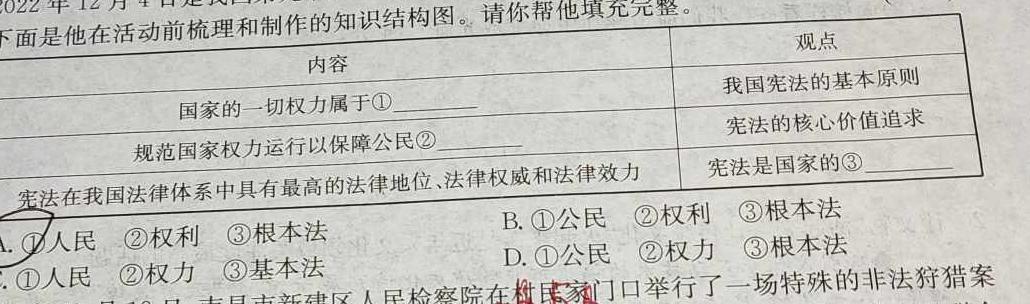 2022年12月4日是我国
下面是他在活动前梳理和制作的知识结构图。请你帮他填充完整。
内容 观点
国家的一切权力属于①______ 我国宪法的基本原则
规范国家权力运行以保障公民②______ 宪法的核心价值追求
宪法在我国法律体系中具有最高的法律地位、法律权威和法律效力 宪法是国家的③______
A. ①人民 ②权利 ③根本法 B. ①公民 ②权利 ③根本法
C. ①人民 ②权力 ③基本法 D. ①公民 ②权力 ③根本法
南昌市新建区人民检察院在村民家门口举行了一场特殊的非法狩猎案